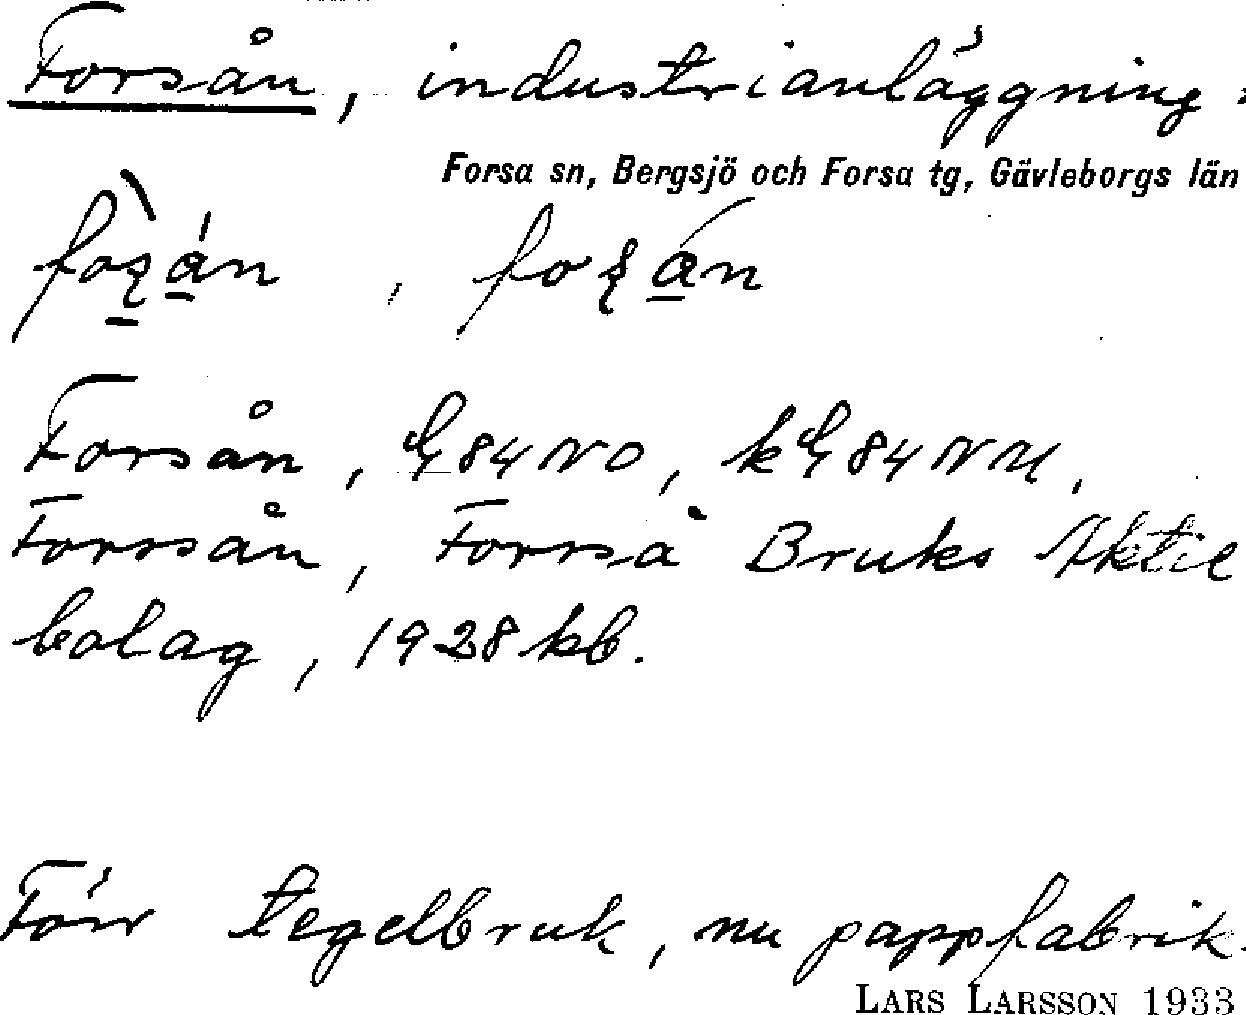 Forsån, industrianläggning
Forsa sn, Bergsjö och Forsa tg, Gävleborgs län
Forsån, G84NO, kG84NV,
Forssån, Forssa Bruks Aktie
bolag, 1928 kb.
Förr tegelbruk, nu pappfabrik.
LARS LARSSON 1933